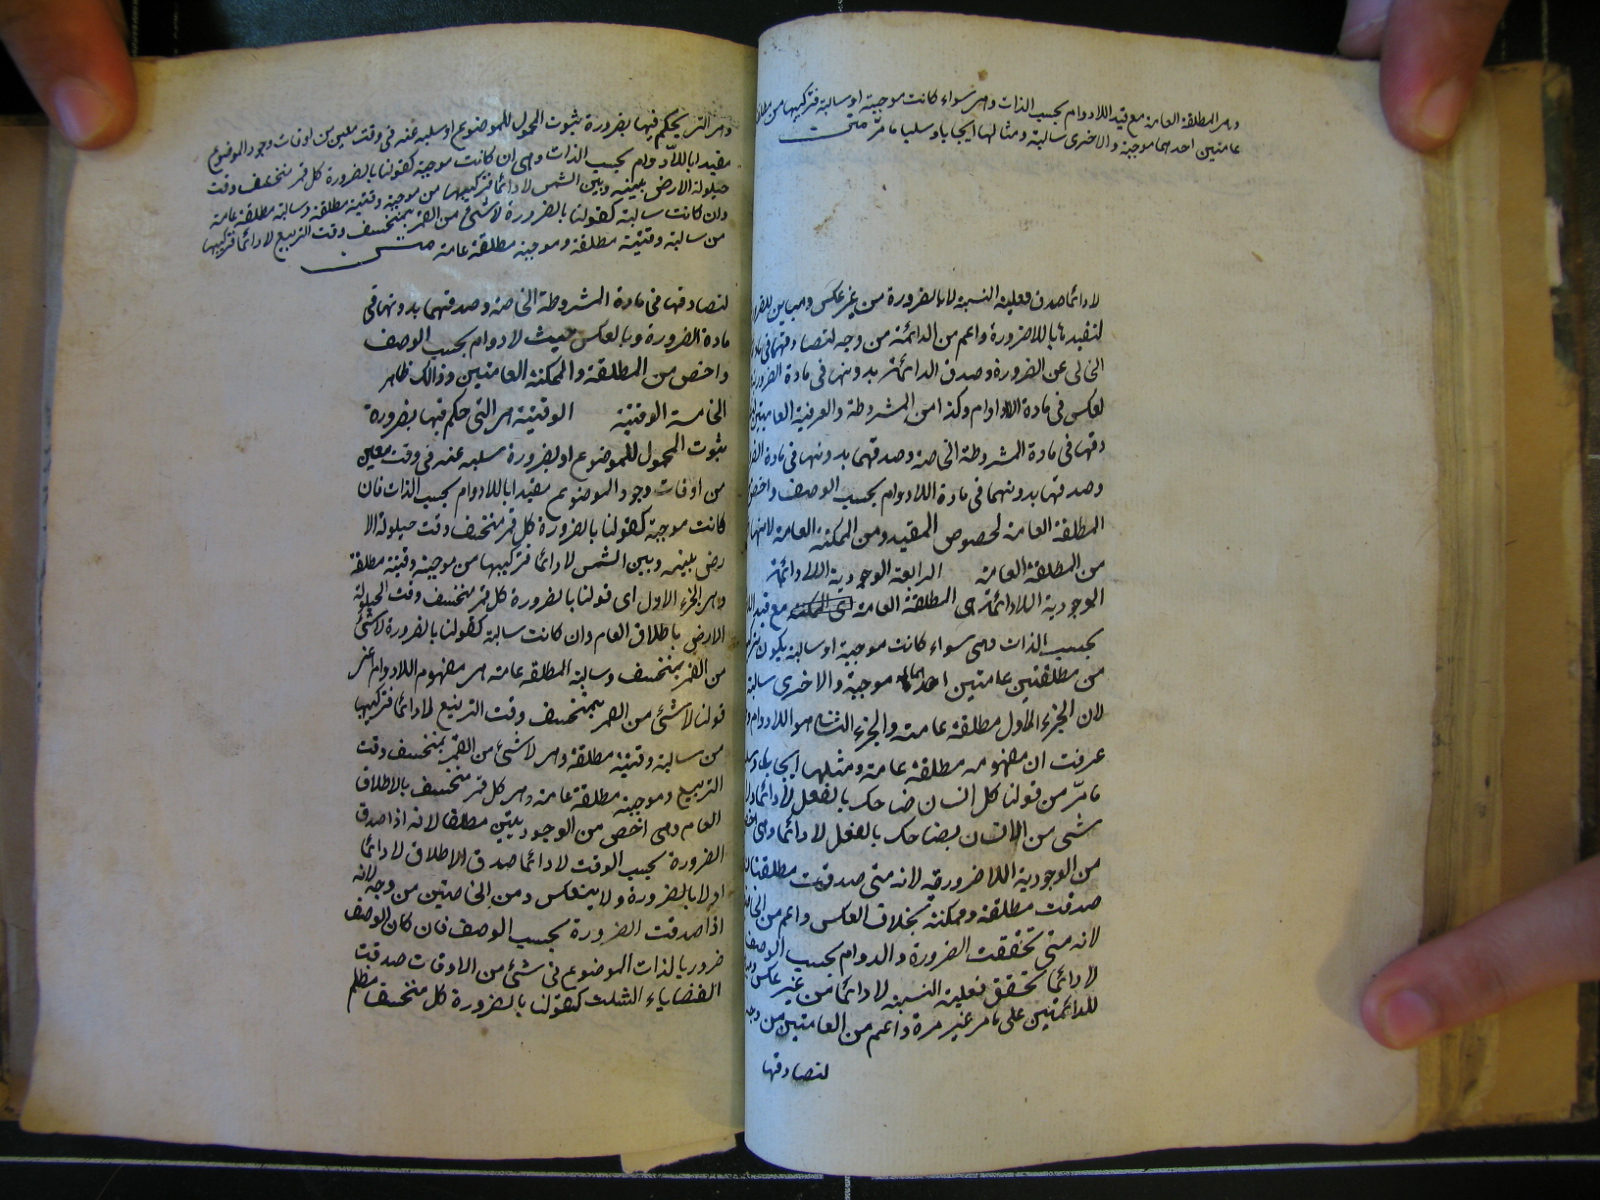 وهى المطلقة العامة مع قيد اللادوام بحسب الذات وهى سواء كانت موجبة او سالبة فتركيبها من
عامتين احديهما موجبة والاخرى سالبة ومثالها ايجابا وسلبا ما مرّ متن
لا دائما صدق فعلية النسبة لا بالضرورة من غير عكس ومباين
لتقيدها باللاضرورة واعم من الدائمة من وجه لتصادقهما فى
الخالى عن الضرورة وصدق الدائمة بدونها فى مادة الضرورة
لعكس فى مادة اللادوام وكذا من المشروطة والعرفية العامتين
دقها فى مادة المشروطة الخاصة وصدقهما بدونها فى مادة
وصدقها بدونهما فى مادة اللادوام بحسب الوصف واخص
المطلقة العامة لخصوص المقيد ومن الممكنة العامة لانها
من المطلقة العامة الرابعة الوجودية اللادائمة
الوجودية اللادائمة هى المطلقة العامة مع قيد
بحسب الذات وهى سواء كانت موجبة او سالبة يكون
من مطلقتين عامتين احديهما موجبة والاخرى سالبة
لان الجزء الاول مطلقة عامة والجزء الثانى هو اللادوام
عرفت ان مفهومه مطلقة عامة ومثلها ايجابا
ما مرّ من قولنا كل انسان ضاحك بالفعل لا دائما
شئ من الانسان بضاحك بالفعل لا دائما وهى
من الوجودية اللاضرورية لانه متى صدقت مطلقتان
صدقت مطلقة وممكنة بخلاف العكس واعم من
لانه متى تحققت الضرورة والدوام بحسب الوصف
لا دائما تحقق فعلية النسبة لا دائما من غير عكس
للدائمتين على ما مر غير مرة واعم من العامتين من
لتصادقها
وهى التى يحكم فيها بضرورة ثبوت المحمول للموضوع او سلبه عنه فى وقت معين من اوقات وجود الموضوع
مقيدا باللادوام بحسب الذات وهى ان كانت موجبة كقولنا بالضرورة كل قمر منخسف وقت
حيلولة الارض بينه وبين الشمس لا دائما فتركيبها من موجبة وقتية مطلقة وسالبة مطلقة عامة
وان كانت سالبة كقولنا بالضرورة لا شئ من القمر بمنخسف وقت التربيع لا دائما فتركيبها
من سالبة وقتية مطلقة وموجبة مطلقة عامة متن
لتصادقها فى مادة المشروطة الخاصة وصدقهما بدونها فى
مادة الضرورة وبالعكس حيث لا دوام بحسب الوصف
واخص من المطلقة والممكنة العامتين وذالك ظاهر
الخامسة الوقتية الوقتية هى التى حكم فيها بضرورة
ثبوت المحمول للموضوع او بضرورة سلبه عنه فى وقت معين
من اوقات وجود الموضوع مقيدا باللادوام بحسب الذات فان
كانت موجبة كقولنا بالضرورة كل قمر منخسف وقت حيلولة الا
رض بينه وبين الشمس لا دائما فتركيبها من موجبة وقتية مطلقة
وهى الجزء الاول اى قولنا بالضرورة كل قمر منخسف وقت الحيلولة
الارض باطلاق العام وان كانت سالبة كقولنا بالضرورة لا شئ
من القمر بمنخسف وسالبة المطلقة عامة هى مفهوم اللادوام
قولنا لا شئ من القمر بمنخسف وقت التربيع لا دائما فتركيبها
من سالبة وقتية مطلقة وهى لا شئ من القمر بمنخسف وقت
التربيع وموجبة مطلقة عامة وهى كل قمر منخسف بالاطلاق
العام وهى اخص من الوجوديتين مطلقا لانه اذا صدق
الضرورة بحسب الوقت لا دائما صدق الاطلاق لا دائما
اولا بالضرورة ولا ينعكس ومن الخاصتين من وجه لانه
اذا صدقت الضرورة بحسب الوصف فان كان الوصف
ضروريا لذات الموضوع فى شئ من الاوقات صدقت
القضاياء الثلث كقولنا بالضرورة كل منخسف مظلم